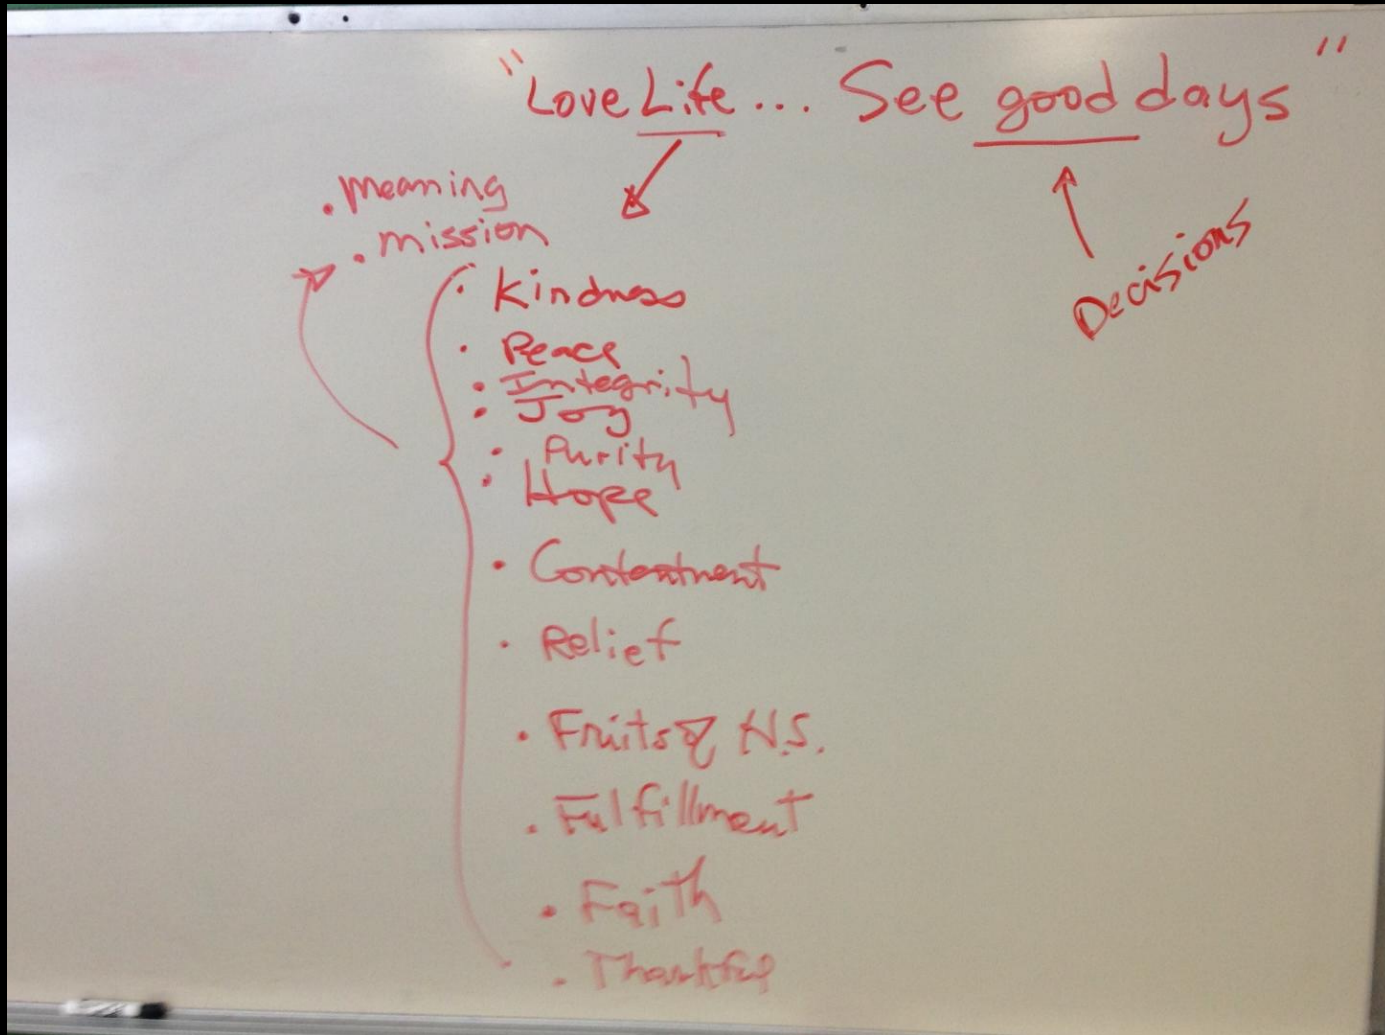 "Love Life... See good days"
• meaning
• mission
• Kindness
• Peace
• Integrity
• Joy
• Purity
• Hope
• Contentment
• Relief
• Fruits of H.S.
• Fulfillment
• Faith
• Thankful
Decisions